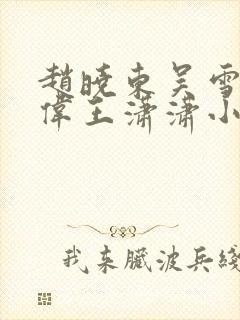 趙曉東吴雪
偉王瀟瀟小
我来臓波兵綫